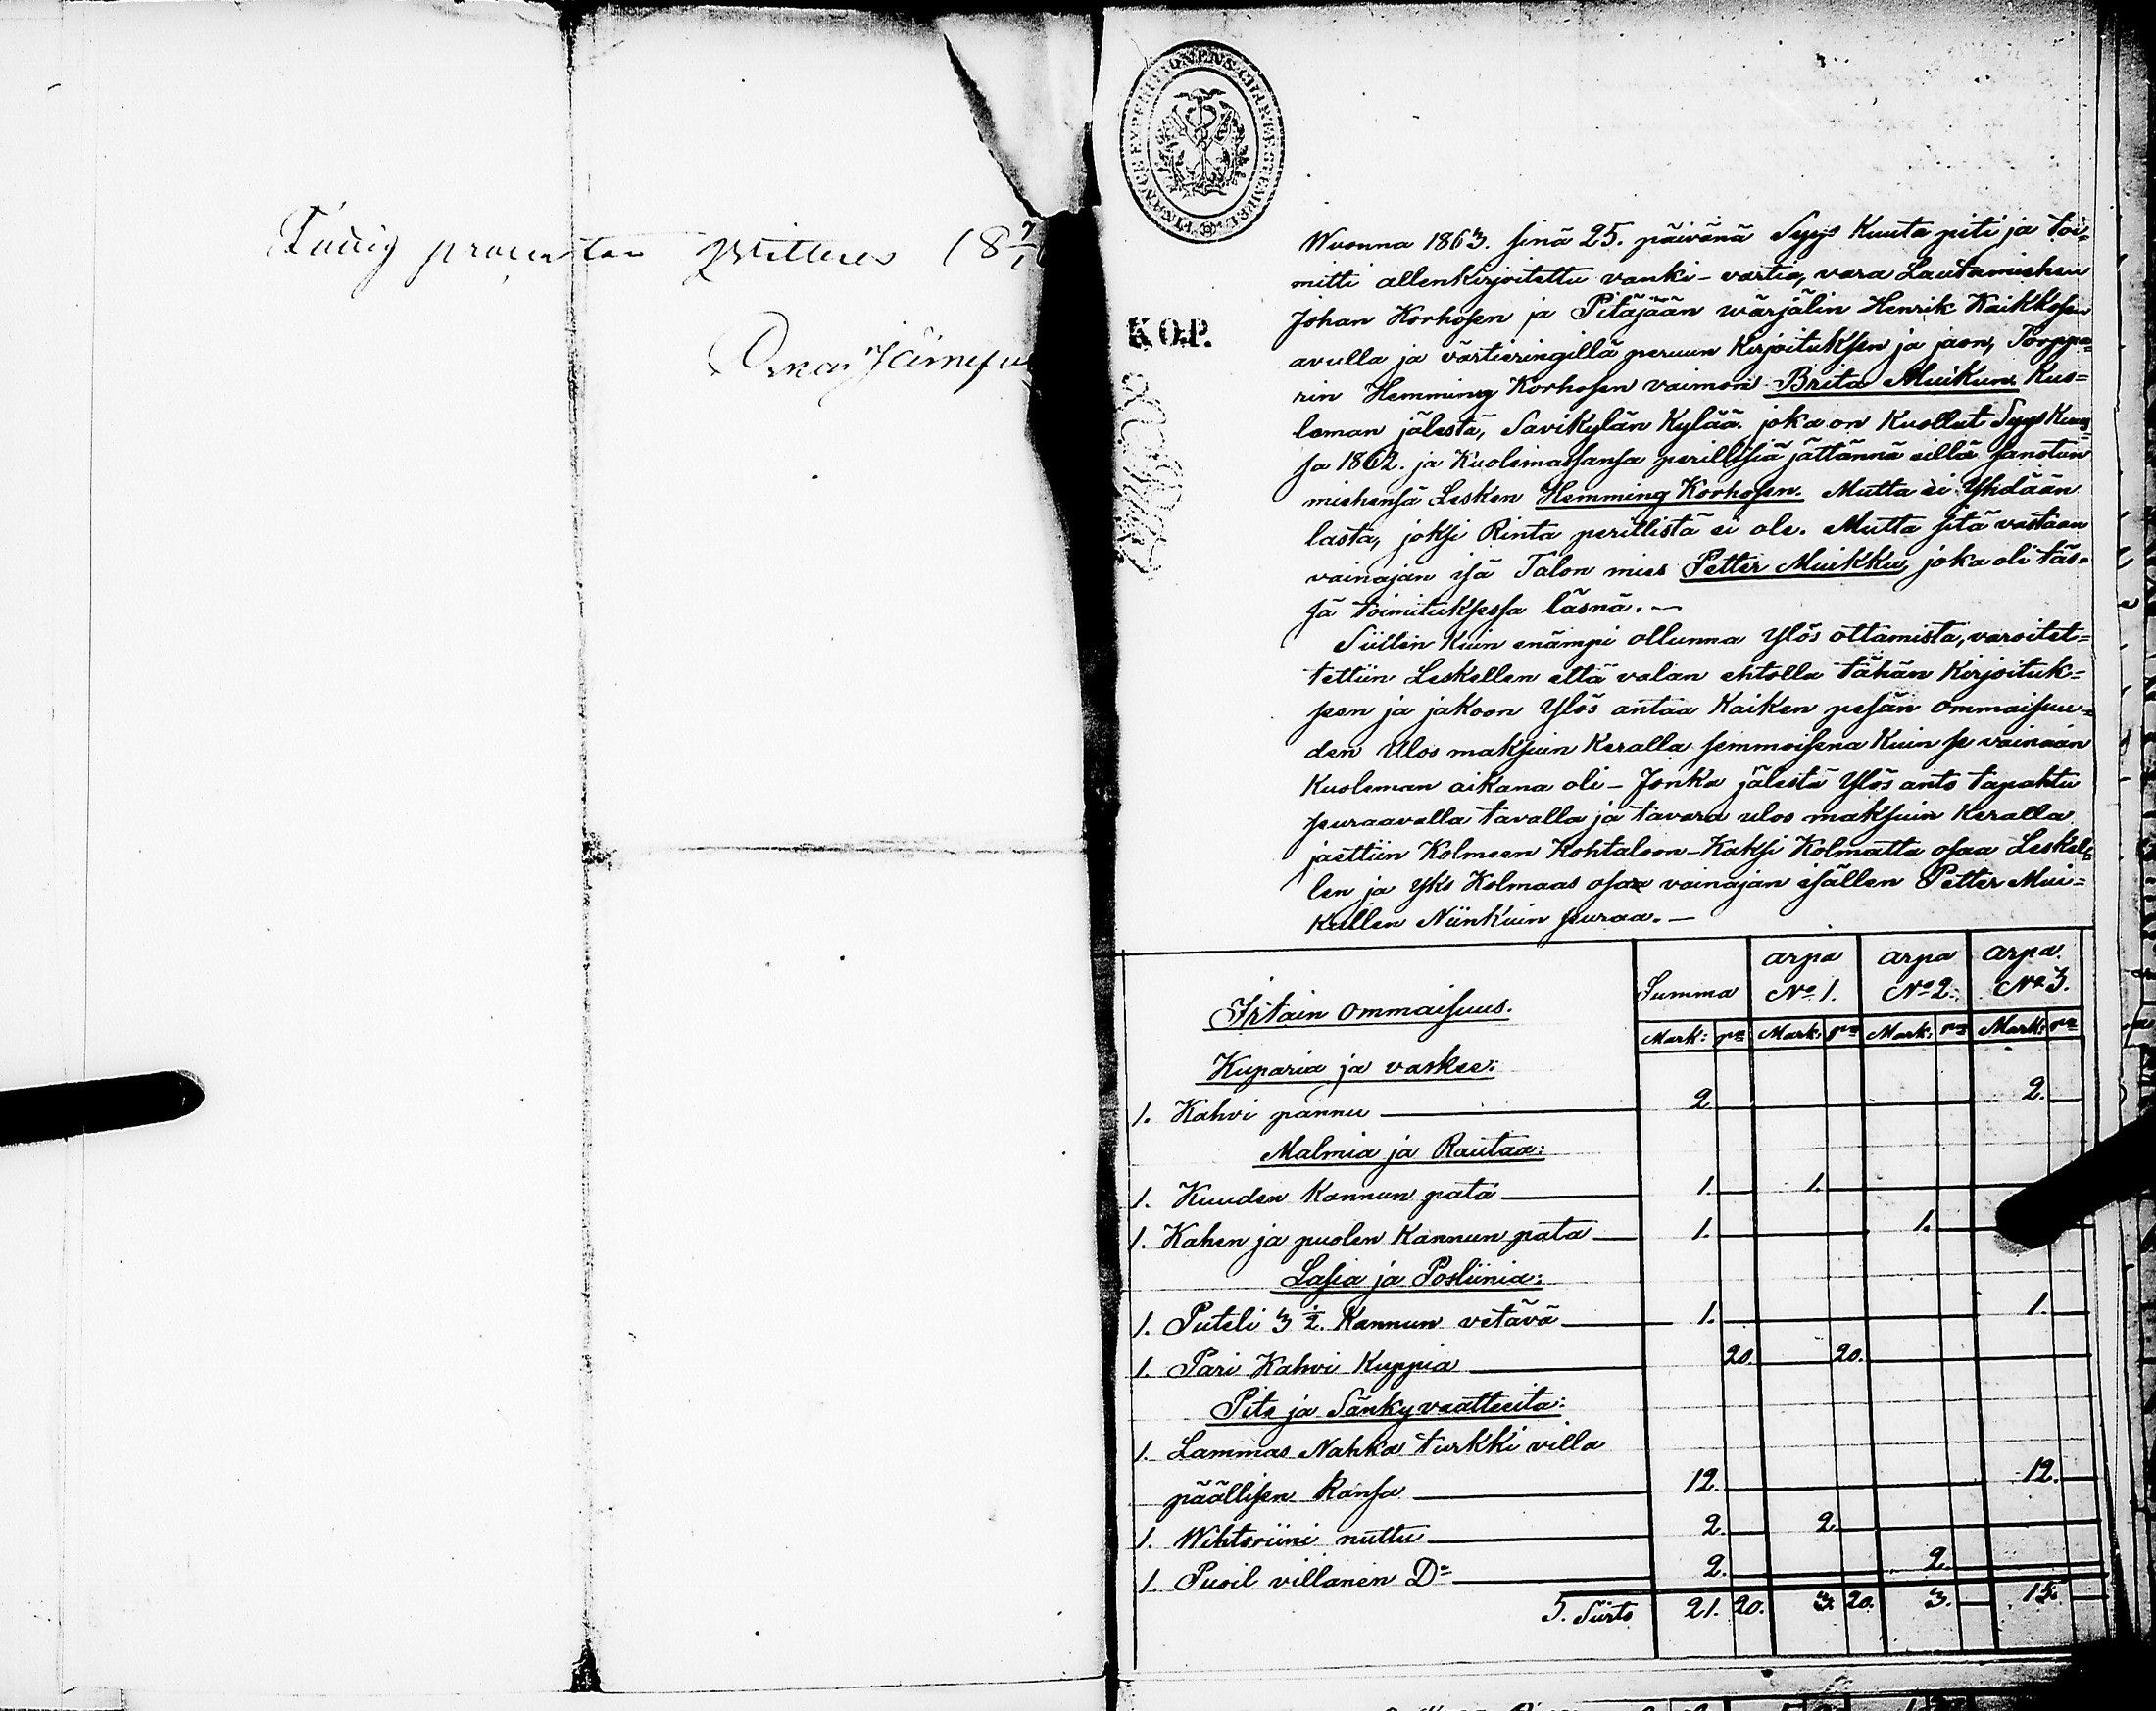 Oskar Järnef
FINANCIEEXPEDITIONENS CHARTÆSTEMPEL
KOP.
Wuonna 1863. sinä 25. päivänä Syys Kuuta piti ja toi-
mitti allenkirjoitettu vanki-vartia, vara Lautamiehen
Johan Korhosen ja Pitäjään wärjälin Henrik Kaikkosen
avulla ja värtieringillä peruun Kirjoituksen ja jaon, Torppa-
rin Hemming Korhosen vaimon Brita Muikun Kuo-
leman jälestä, Savikylän Kylää. joka on Kuollut Syys Kuus-
sa 1862. ja Kuolemassansa perillisiä jättännä eillä sanotun
miehensä Lesken Hemming Korhosen. Mutta ei Yhdään
lasta, joksi Rinta perillistä ei ole. Mutta sitä vastaan
vainajan isä Talon mies Petter Muikku, joka oli täs-
sä toimituksessa läsnä. —
Siitten Kuin enämpi ollunna Ylös ottamista, varoitet-
tettiin Leskellen että valan ehtolla tähän Kirjoituk-
seen ja jakoon Ylös antaa Kaiken pesän ommaisuu-
den Ulos maksuin Keralla semmoisena Kuin se vainaan
Kuoleman aikana oli - Jonka jälestä Ylös anto tapahtu
seuraavalla tavalla ja tavara ulos maksuin Keralla
jaettiin Kolmeen Kohtaloon - Kaksi Kolmatta osaa Leskel-
len ja Yks Kolmaas osaa vainajan isällen Petter Mui-
kullen Niinkuin seuraa. —
Irtain ommaisuus. Summa arpa No 1. arpa No 2. arpa No 3.
Mark: pa Mark: pa Mark: pa Mark: pa
Kuparia ja vaskee:
1. Kahvi pännu 2 2.
Malmia ja Rautaa:
1. Kuuden Kannun pata 1. 1.
1. Kahen ja puolen Kannun pata 1. 1.
Lasia ja Posliinia:
1. Puteli 3 1/2 Kannun vetävä 1. 1.
1. Pari Kahvi Kuppia 20. 20.
Pito ja Sänkyvaatteita:
1. Lammas Nahka turkki villa
päällisen Kansa 12. 12.
1. Wihtoriini nuttu 2. 2
1. Puoil villanen Do 2. 2.
S. Siirto 21. 20. 3. 20. 3. 15.